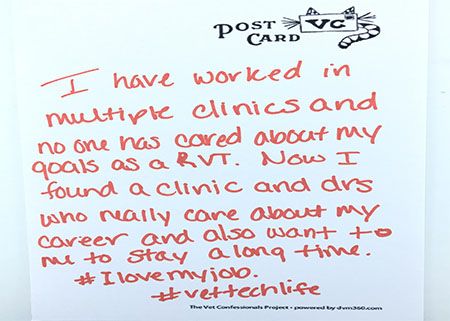 POST CARD VC
I have worked in
multiple clinics and
no one has cared about my
goals as a RVT. Now I
found a clinic and drs
who really care about my
career and also want to
me to stay a long time.
#Ilovemyjob.
#vettechlife
The Vet Confessionals Project • powered by dvm360.com